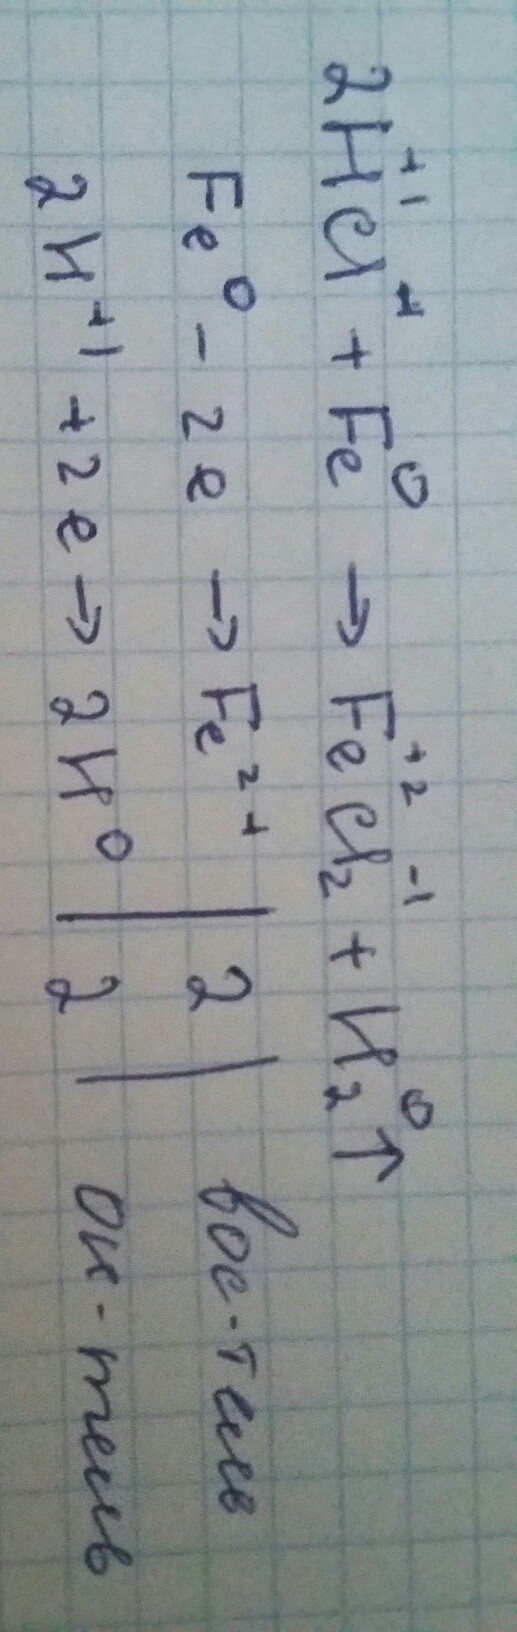 2H⁺¹Cl⁻¹ + Fe⁰ → Fe⁺²Cl₂⁻¹ + H₂⁰↑
Fe⁰ - 2e → Fe²⁺ | 2 | вос-тель
2H⁺¹ + 2e → 2H⁰ | 2 | ок-тель